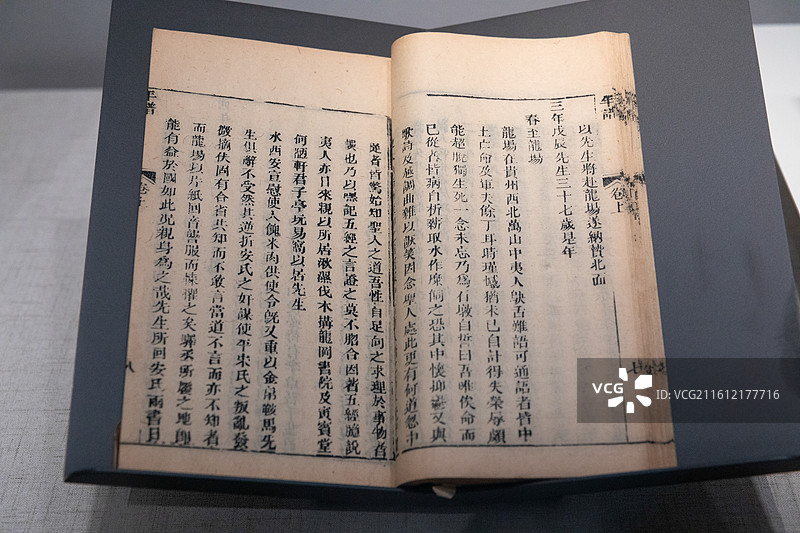 年譜
卷上
以先生將赴龍場遂納贄北面
三年戊辰先生三十七歲是年
春至龍場
龍場在貴州西北萬山中夷人鴃舌難語可通語者皆中
土亡命及軍夫餘丁耳時瑾憾猶未已自計得失榮辱顧
能超脫獨生死一念未忘乃為石墩自誓曰吾唯俟命而
已從者皆病自析薪取水作糜飼之恐其中懷抑鬱又與
歌詩及越調曲雜以詼笑因念聖人處此更有何道忽中
從者皆驚始知聖人之道吾性自足向之求理於事物者
誤也乃以嘿記五經之言證之莫不脗合因著五經臆說
夷人亦日來親以所居湫濕伐木搆龍岡書院及寅賓堂
何陋軒君子亭玩易窩以居先生
水西安宣慰使人餽米肉供使令旣又重以金帛鞍馬先
生俱辭不受然其逆折安氏之奸謀使平宋氏之叛亂發
微摘伏固有合省共知而不敢言當道不言而亦不知者
而龍場以片紙回音讋服而悚懼之矣驛丞所履之地卽
能有益於國如此况親身為之哉先生所回安氏兩書日
年譜
八
VCG
VCG211612177716